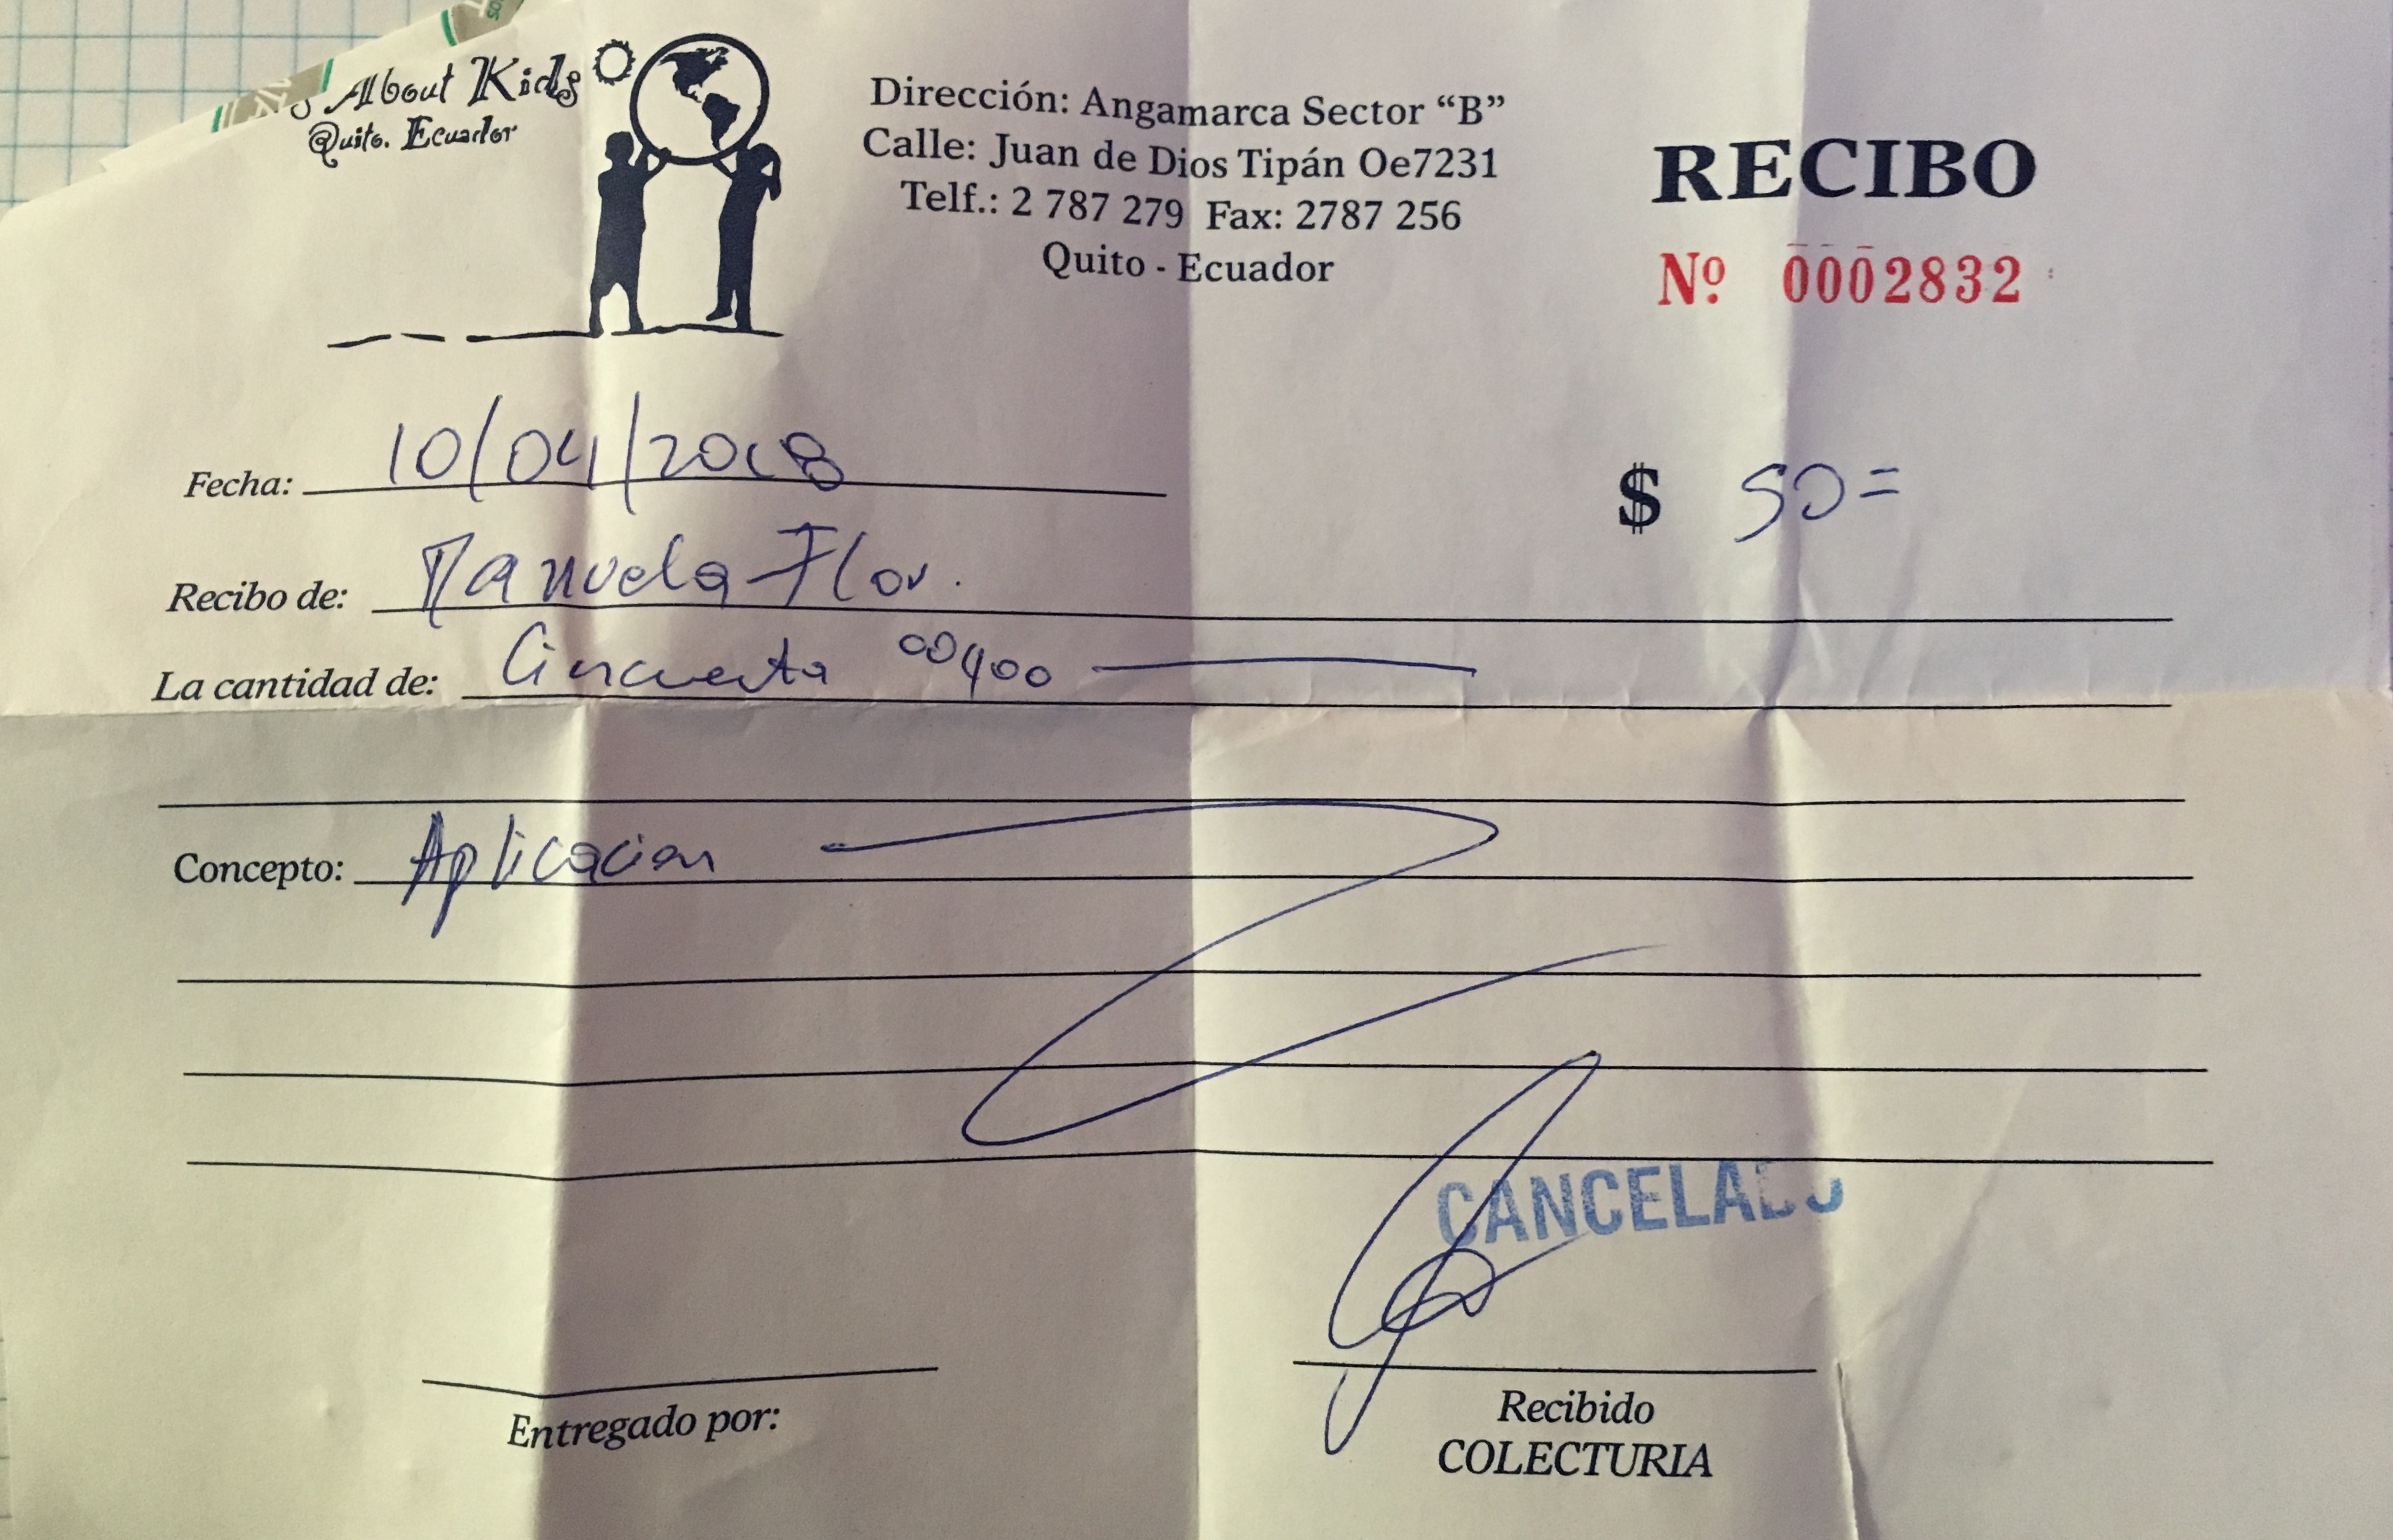 About Kids
Quito. Ecuador
Dirección: Angamarca Sector “B”
Calle: Juan de Dios Tipán Oe7231
Telf.: 2 787 279 Fax: 2787 256
Quito - Ecuador
RECIBO
Nº 0002832
Fecha: 10/04/2018
$ 50=
Recibo de: Manuela Flor.
La cantidad de: Cincuenta 00/100
Concepto: Aplicacion
CANCELADO
Entregado por:
Recibido
COLECTURIA